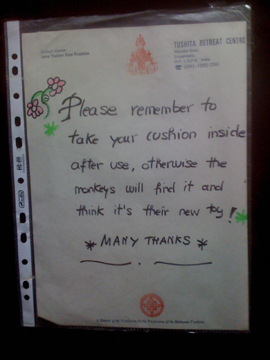 TUSHITA RETREAT CENTRE
Please remember to
take your cushion inside
after use, otherwise the
monkeys will find it and
think it's their new toy!
* MANY THANKS *